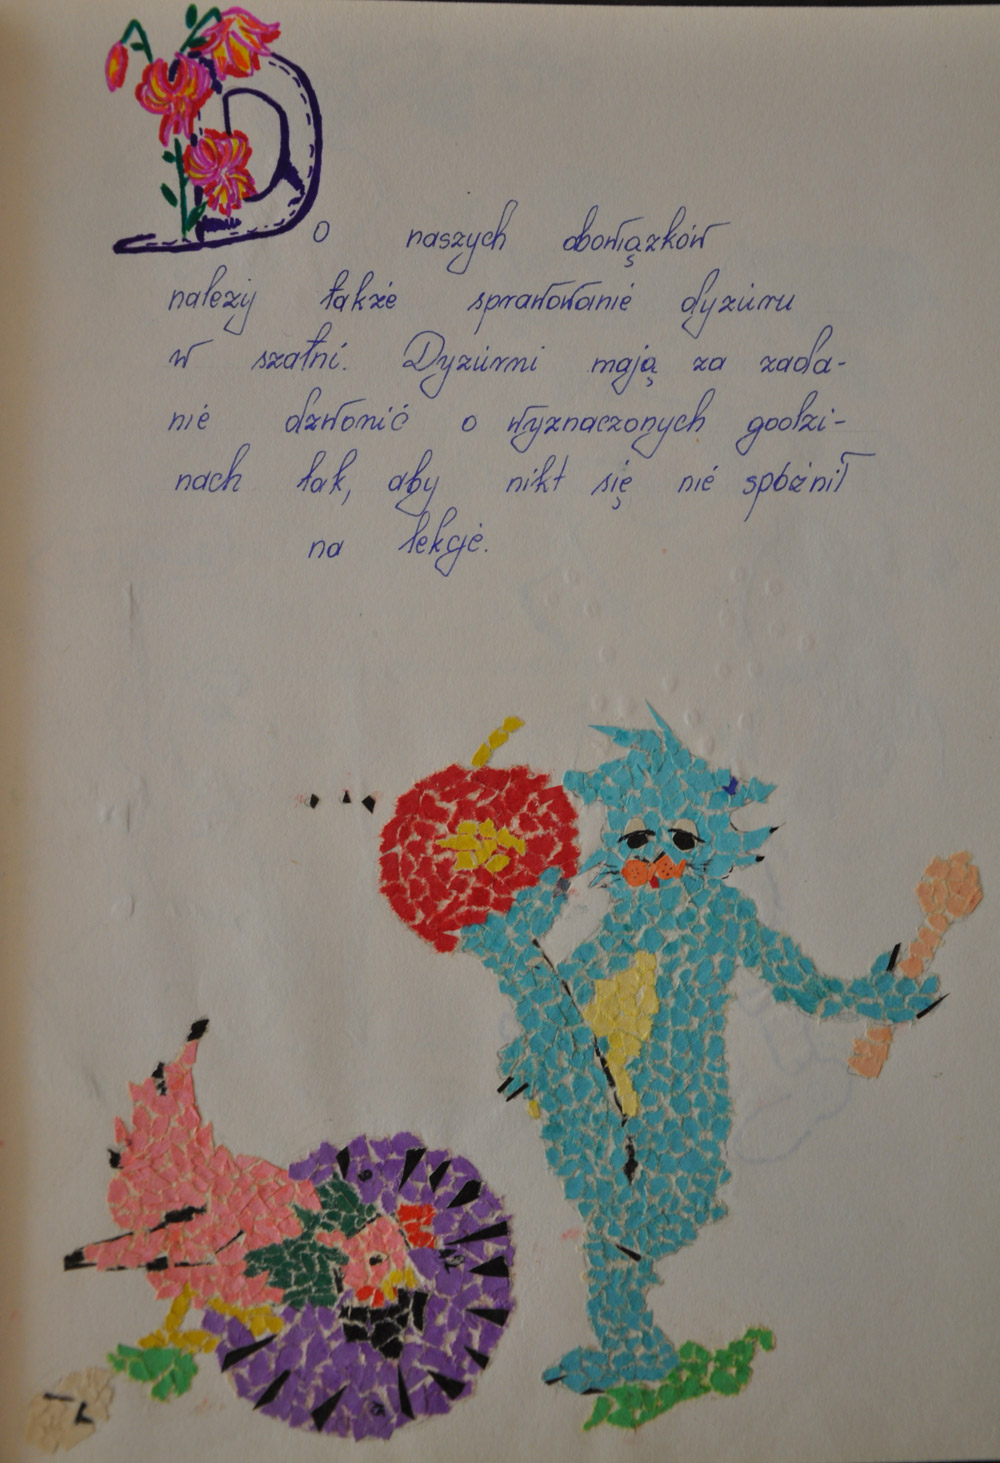 Do naszych obowiązków
należy także sprawowanie dyżuru
w szatni. Dyżurni mają za zada-
nie dzwonić o wyznaczonych godzi-
nach tak, aby nikt się nie spóźnił
na lekcje.